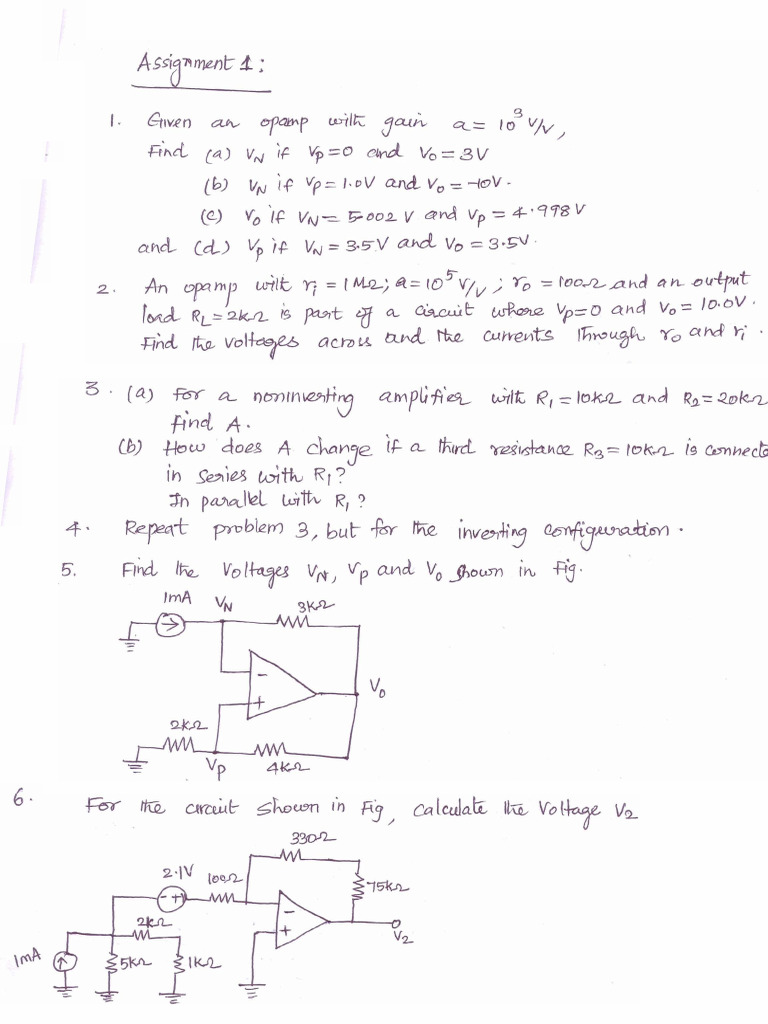 Assignment 1:
1. Given an opamp with gain a = 10³ V/V,
Find (a) VN if VP=0 and VO = 3V
(b) VN if VP = 1.0V and VO = -10V.
(c) VO if VN = 5.002 V and VP = 4.998V
and (d) VP if VN = 3.5V and VO = 3.5V.
2. An opamp with ri = 1MΩ; a = 10⁵ V/V; ro = 100Ω and an output
load RL = 2kΩ is part of a circuit where VP=0 and VO = 10.0V.
Find the voltages across and the currents through ro and ri.
3. (a) For a noninverting amplifier with R1 = 10kΩ and R2 = 20kΩ
find A.
(b) How does A change if a third resistance R3 = 10kΩ is connecte
in series with R1?
In parallel with R1?
4. Repeat problem 3, but for the inverting configuration.
5. Find the Voltages VN, VP and VO shown in Fig.
1mA VN 3kΩ
-
VO
+
2kΩ
VP 4kΩ
6. For the circuit shown in Fig, calculate the Voltage V2
330Ω
2.1V 100Ω
- + 75kΩ
-
2kΩ +
V2
1mA 5kΩ 1kΩ